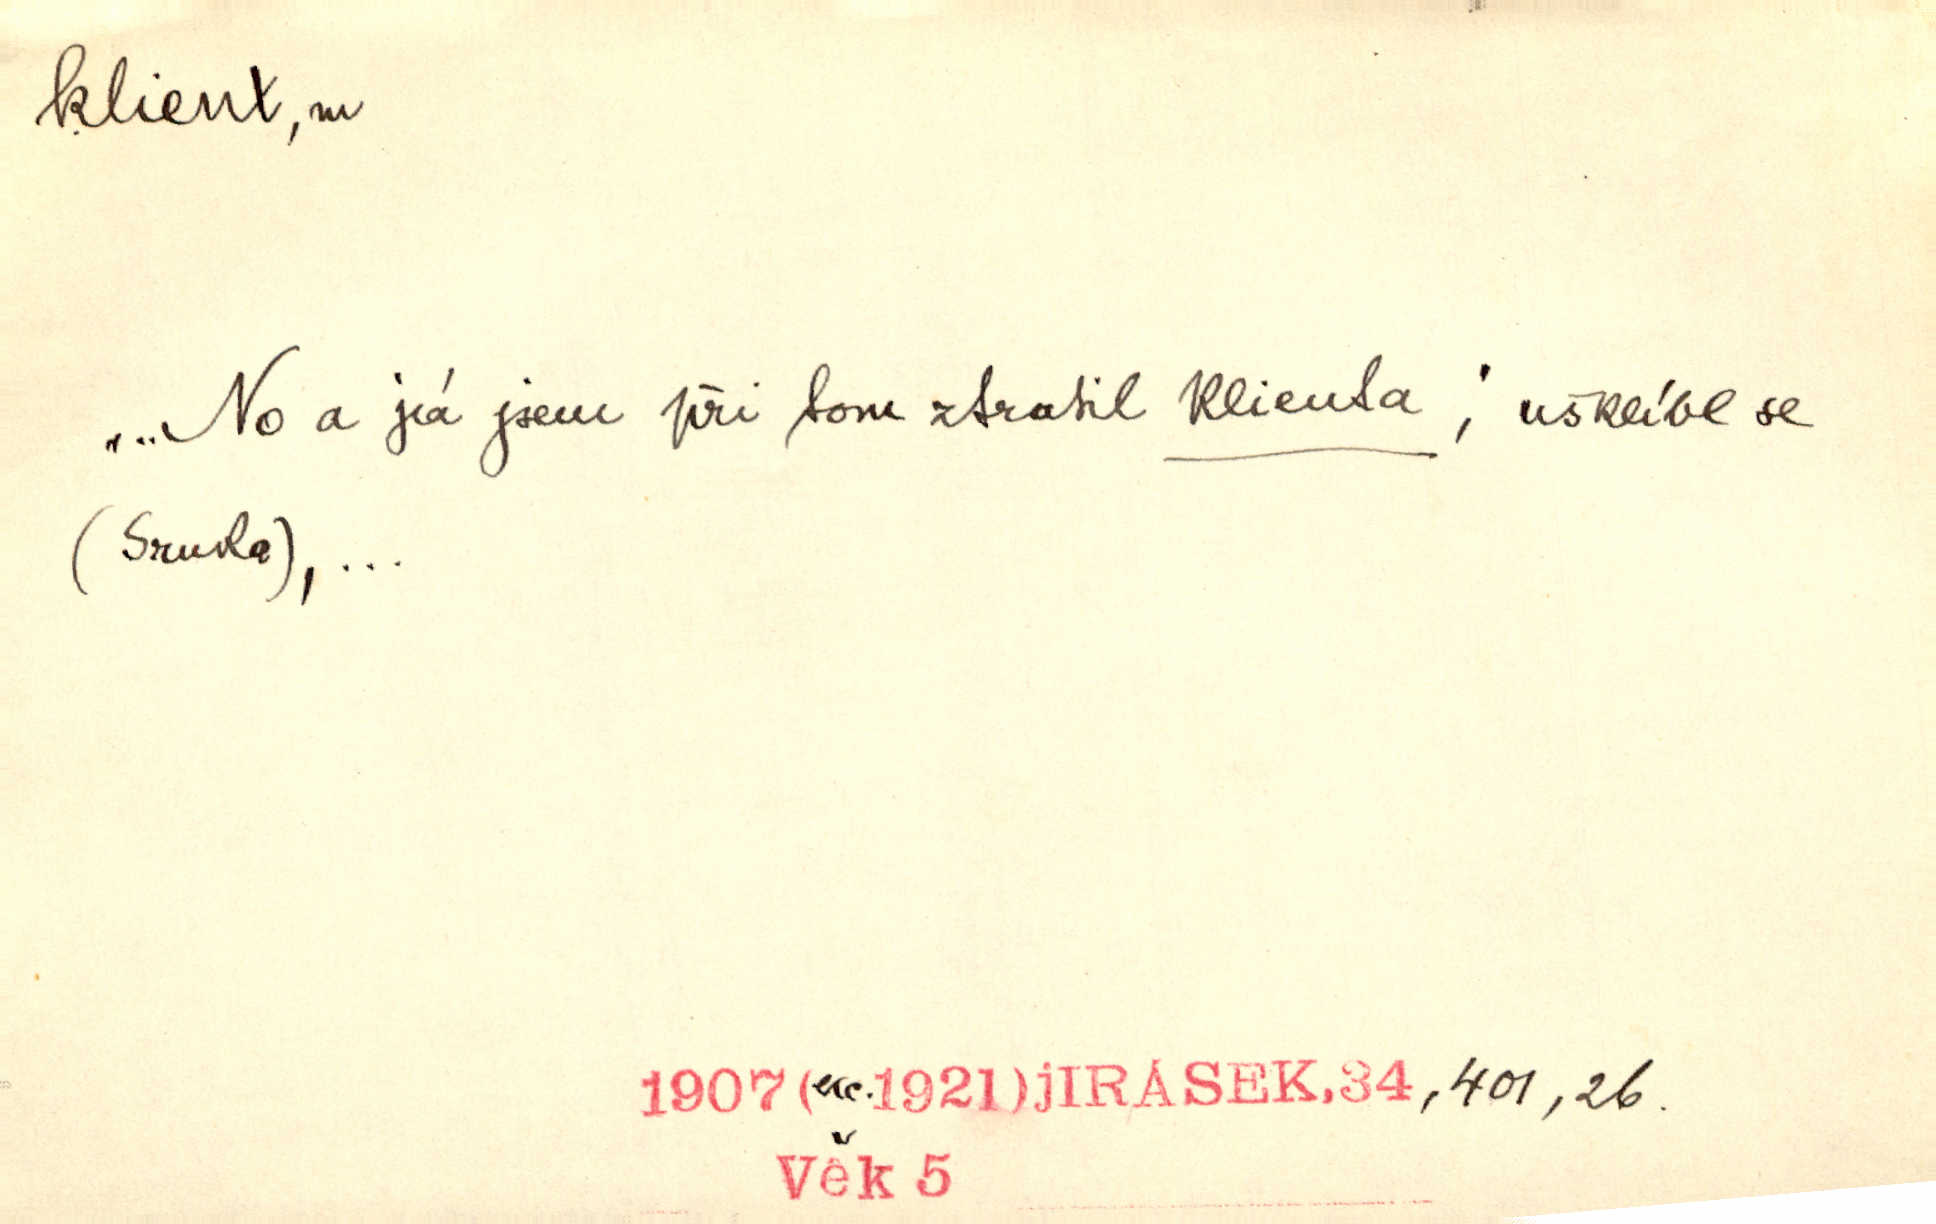 klient, m
„...No a já jsem při tom ztratil klienta,“ ušklíbl se
(Sruda), ...
1907 (exc. 1921) jIRÁSEK,34, 401, 26.
Věk 5